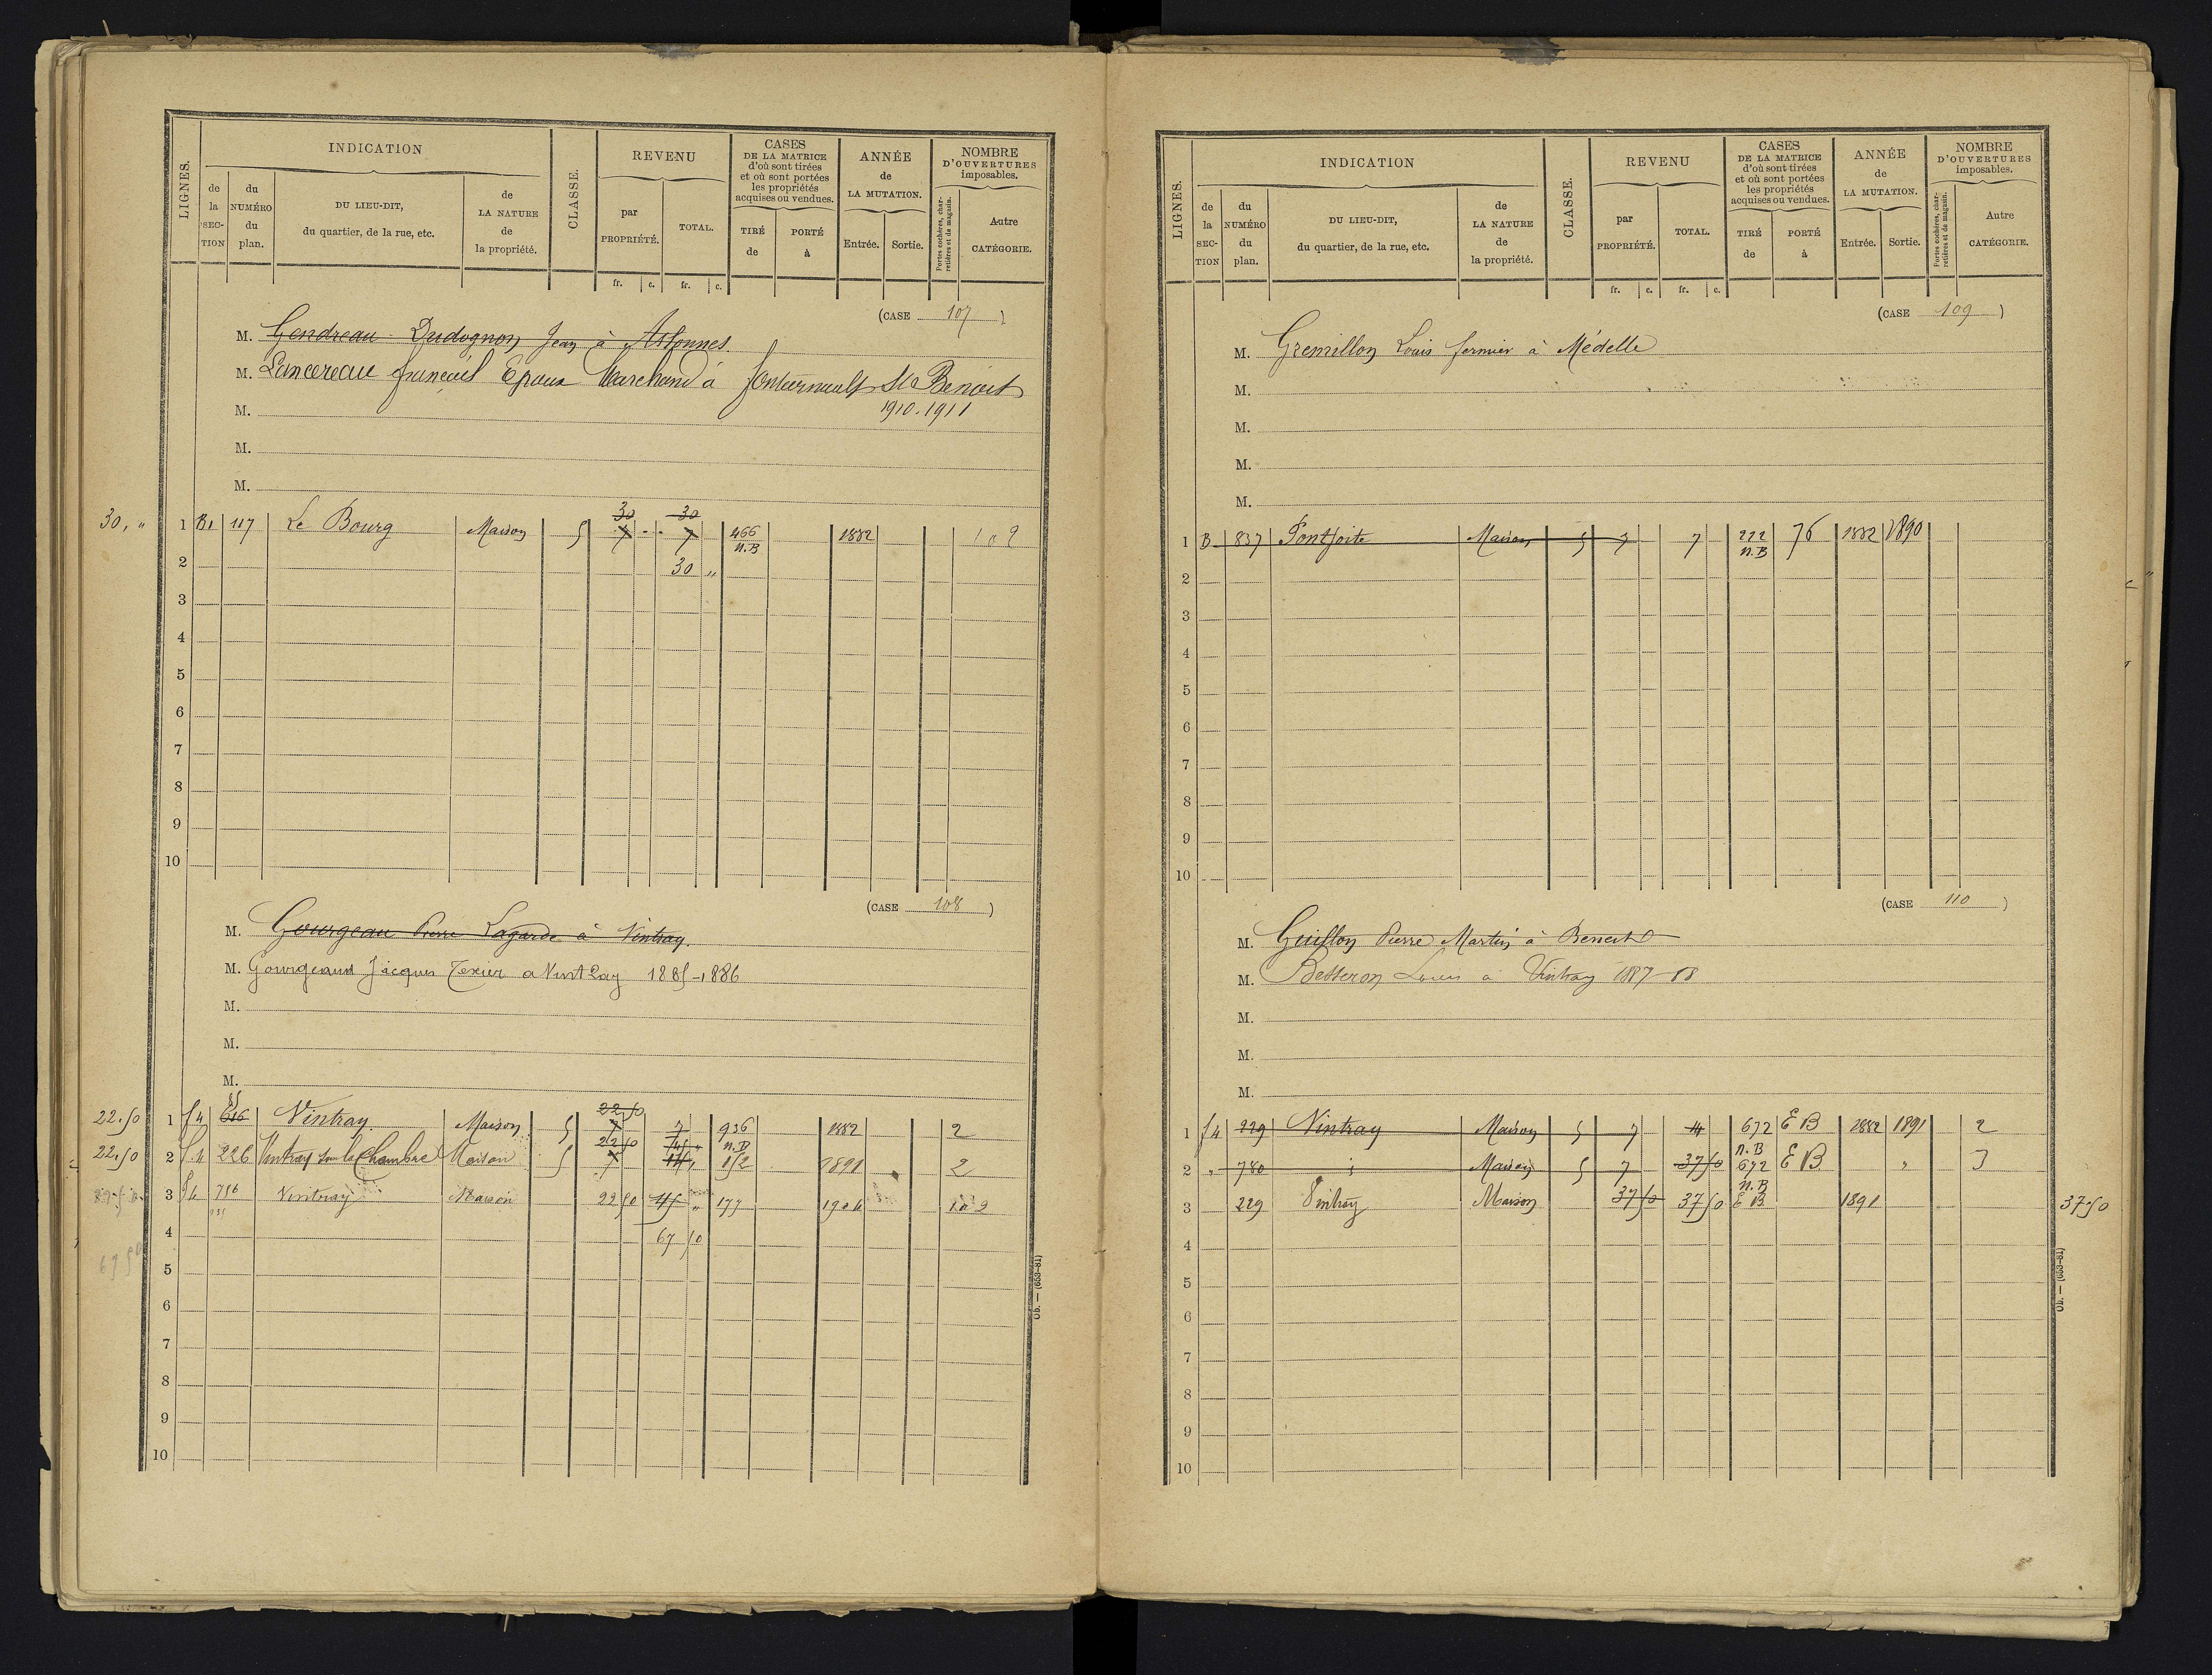 LIGNES.
INDICATION
de la SEC-TION
du NUMÉRO du plan.
DU LIEU-DIT, du quartier, de la rue, etc.
de LA NATURE de la propriété.
CLASSE.
REVENU
par PROPRIÉTÉ.
TOTAL.
fr. c. fr. c.
CASES DE LA MATRICE d'où sont tirées et où sont portées les propriétés acquises ou vendues.
TIRÉ de
PORTÉ à
ANNÉE de LA MUTATION.
Entrée. Sortie.
NOMBRE D'OUVERTURES imposables.
Portes cochères, char-retières et de magasin.
Autre CATÉGORIE.
(CASE 107)
M. Gendreau Dudognon Jean à
M. Lancereau Epoux Marchand à St Benoit
M. 1910.1911
M.
M.
30, "
1 B1 117 Le Bourg Maison 5 30 7 30 7 466 N.B 1882
2 30 "
3
4
5
6
7
8
9
10
(CASE 108)
M. Gourgeau Pierre Lagarde à Vintray.
M. Gourgeaud Jacques Texier a Vintray 1885-1886
M.
M.
M.
22.50 1 f4 616 Vintray Maison 5 22.50 7 7 936 N.B 1882 2
22.50 2 226 Vintray Maison 5 22 50 7 14 152 1891 2
3 756 Vintray Maison 22 50 45 " 177 1904
4 67 50
67 50
5
6
7
8
9
10
Ob. — (653-81)
LIGNES.
INDICATION
de la SEC-TION
du NUMÉRO du plan.
DU LIEU-DIT, du quartier, de la rue, etc.
de LA NATURE de la propriété.
CLASSE.
REVENU
par PROPRIÉTÉ.
TOTAL.
fr. c. fr. c.
CASES DE LA MATRICE d'où sont tirées et où sont portées les propriétés acquises ou vendues.
TIRÉ de
PORTÉ à
ANNÉE de LA MUTATION.
Entrée. Sortie.
NOMBRE D'OUVERTURES imposables.
Portes cochères, char-retières et de magasin.
Autre CATÉGORIE.
(CASE 109)
M. Gremillon Louis fermier à Médelle
M.
M.
M.
M.
1 B 837 Pontjoite Maison 5 7 7 222 N.B 76 1882 1890
2
3
4
5
6
7
8
9
10
(CASE 110)
M. Guillon Pierre Martin à Benest
M. Besseron Louis à Vintray 1887-88
M.
M.
M.
1 f4 229 Vintray Maison 5 7 14 672 N.B E B 1882 1891 2
2 " 780 Maison 5 7 37 50 672 N.B E B " 3
3 229 Vintray Maison 37 50 37 50 E B 1891 37.50
4
5
6
7
8
9
10
Ob. — (653-81)